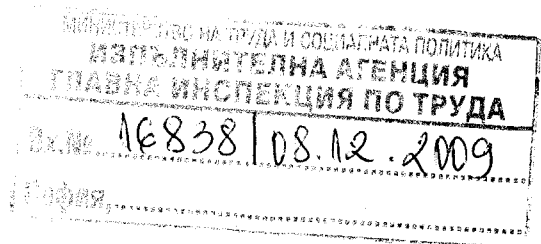 МИНИСТЕРСТВО НА ТРУДА И СОЦИАЛНАТА ПОЛИТИКА
ИЗПЪЛНИТЕЛНА АГЕНЦИЯ
ГЛАВНА ИНСПЕКЦИЯ ПО ТРУДА
Вх.№ 16838 | 08.12.2009
София,